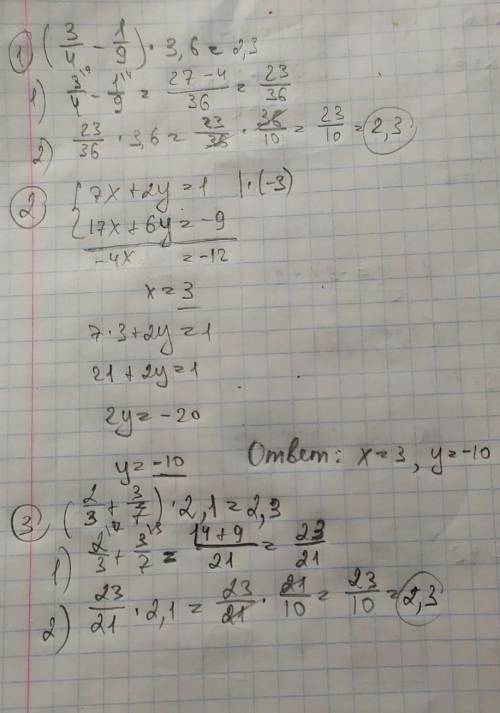 1) (3/4 - 1/9) · 3,6 = 2,3
1) 3\9/4 - 1\4/9 = 27-4/36 = 23/36
2) 23/36 · 3,6 = 23/36 · 36/10 = 23/10 = 2,3
2) { 7x + 2y = 1 | · (-3)
17x + 6y = -9
-4x = -12
x = 3
7 · 3 + 2y = 1
21 + 2y = 1
2y = -20
y = -10 Ответ: x = 3, y = -10
3) (2/3 + 3/7) · 2,1 = 2,3
1) 2\7/3 + 3\3/7 = 14+9/21 = 23/21
2) 23/21 · 2,1 = 23/21 · 21/10 = 23/10 = 2,3